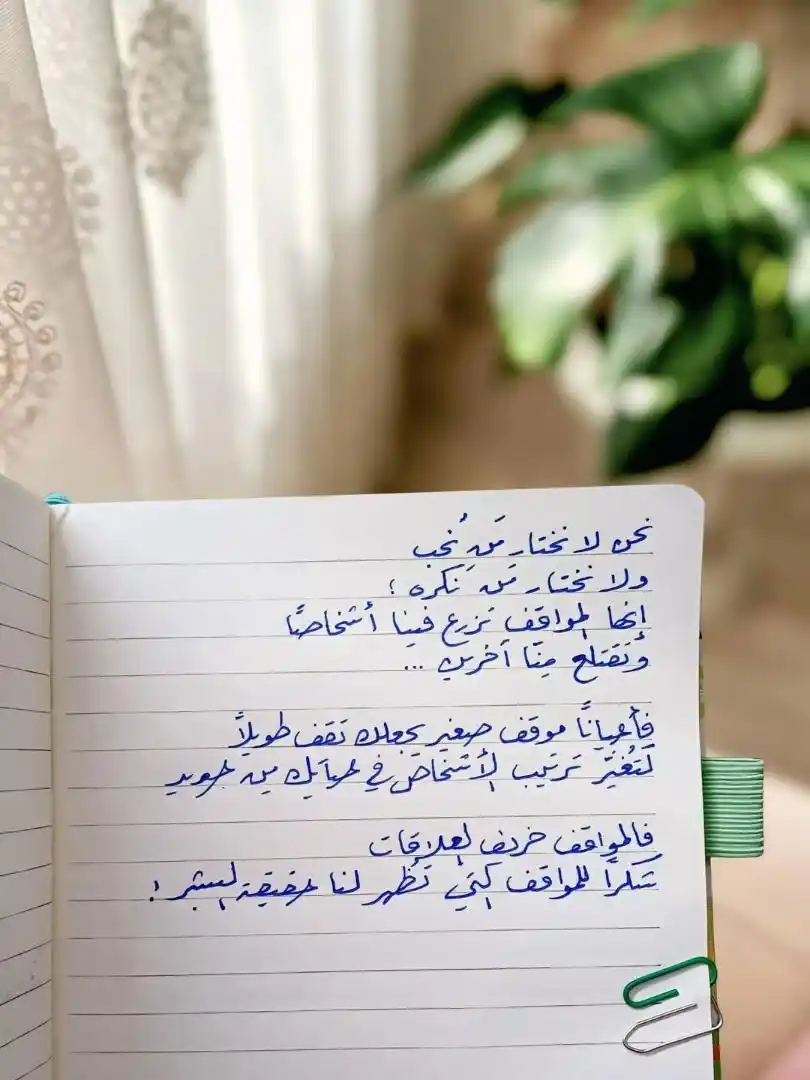 نحن لا نختار مَن نُحب
ولا نختار مَن نَكره ؛
إنها المواقف تزرع فينا أشخاصًا
وتَقتلع مِنّا آخرين ...
فأحيانًا موقف صغير يجعلك تقف طويلاً
لتُغيّر ترتيب الأشخاص في حياتك من جديد
فالمواقف خريف العلاقات
شكراً للمواقف التي تُظهر لنا حقيقة البشر !